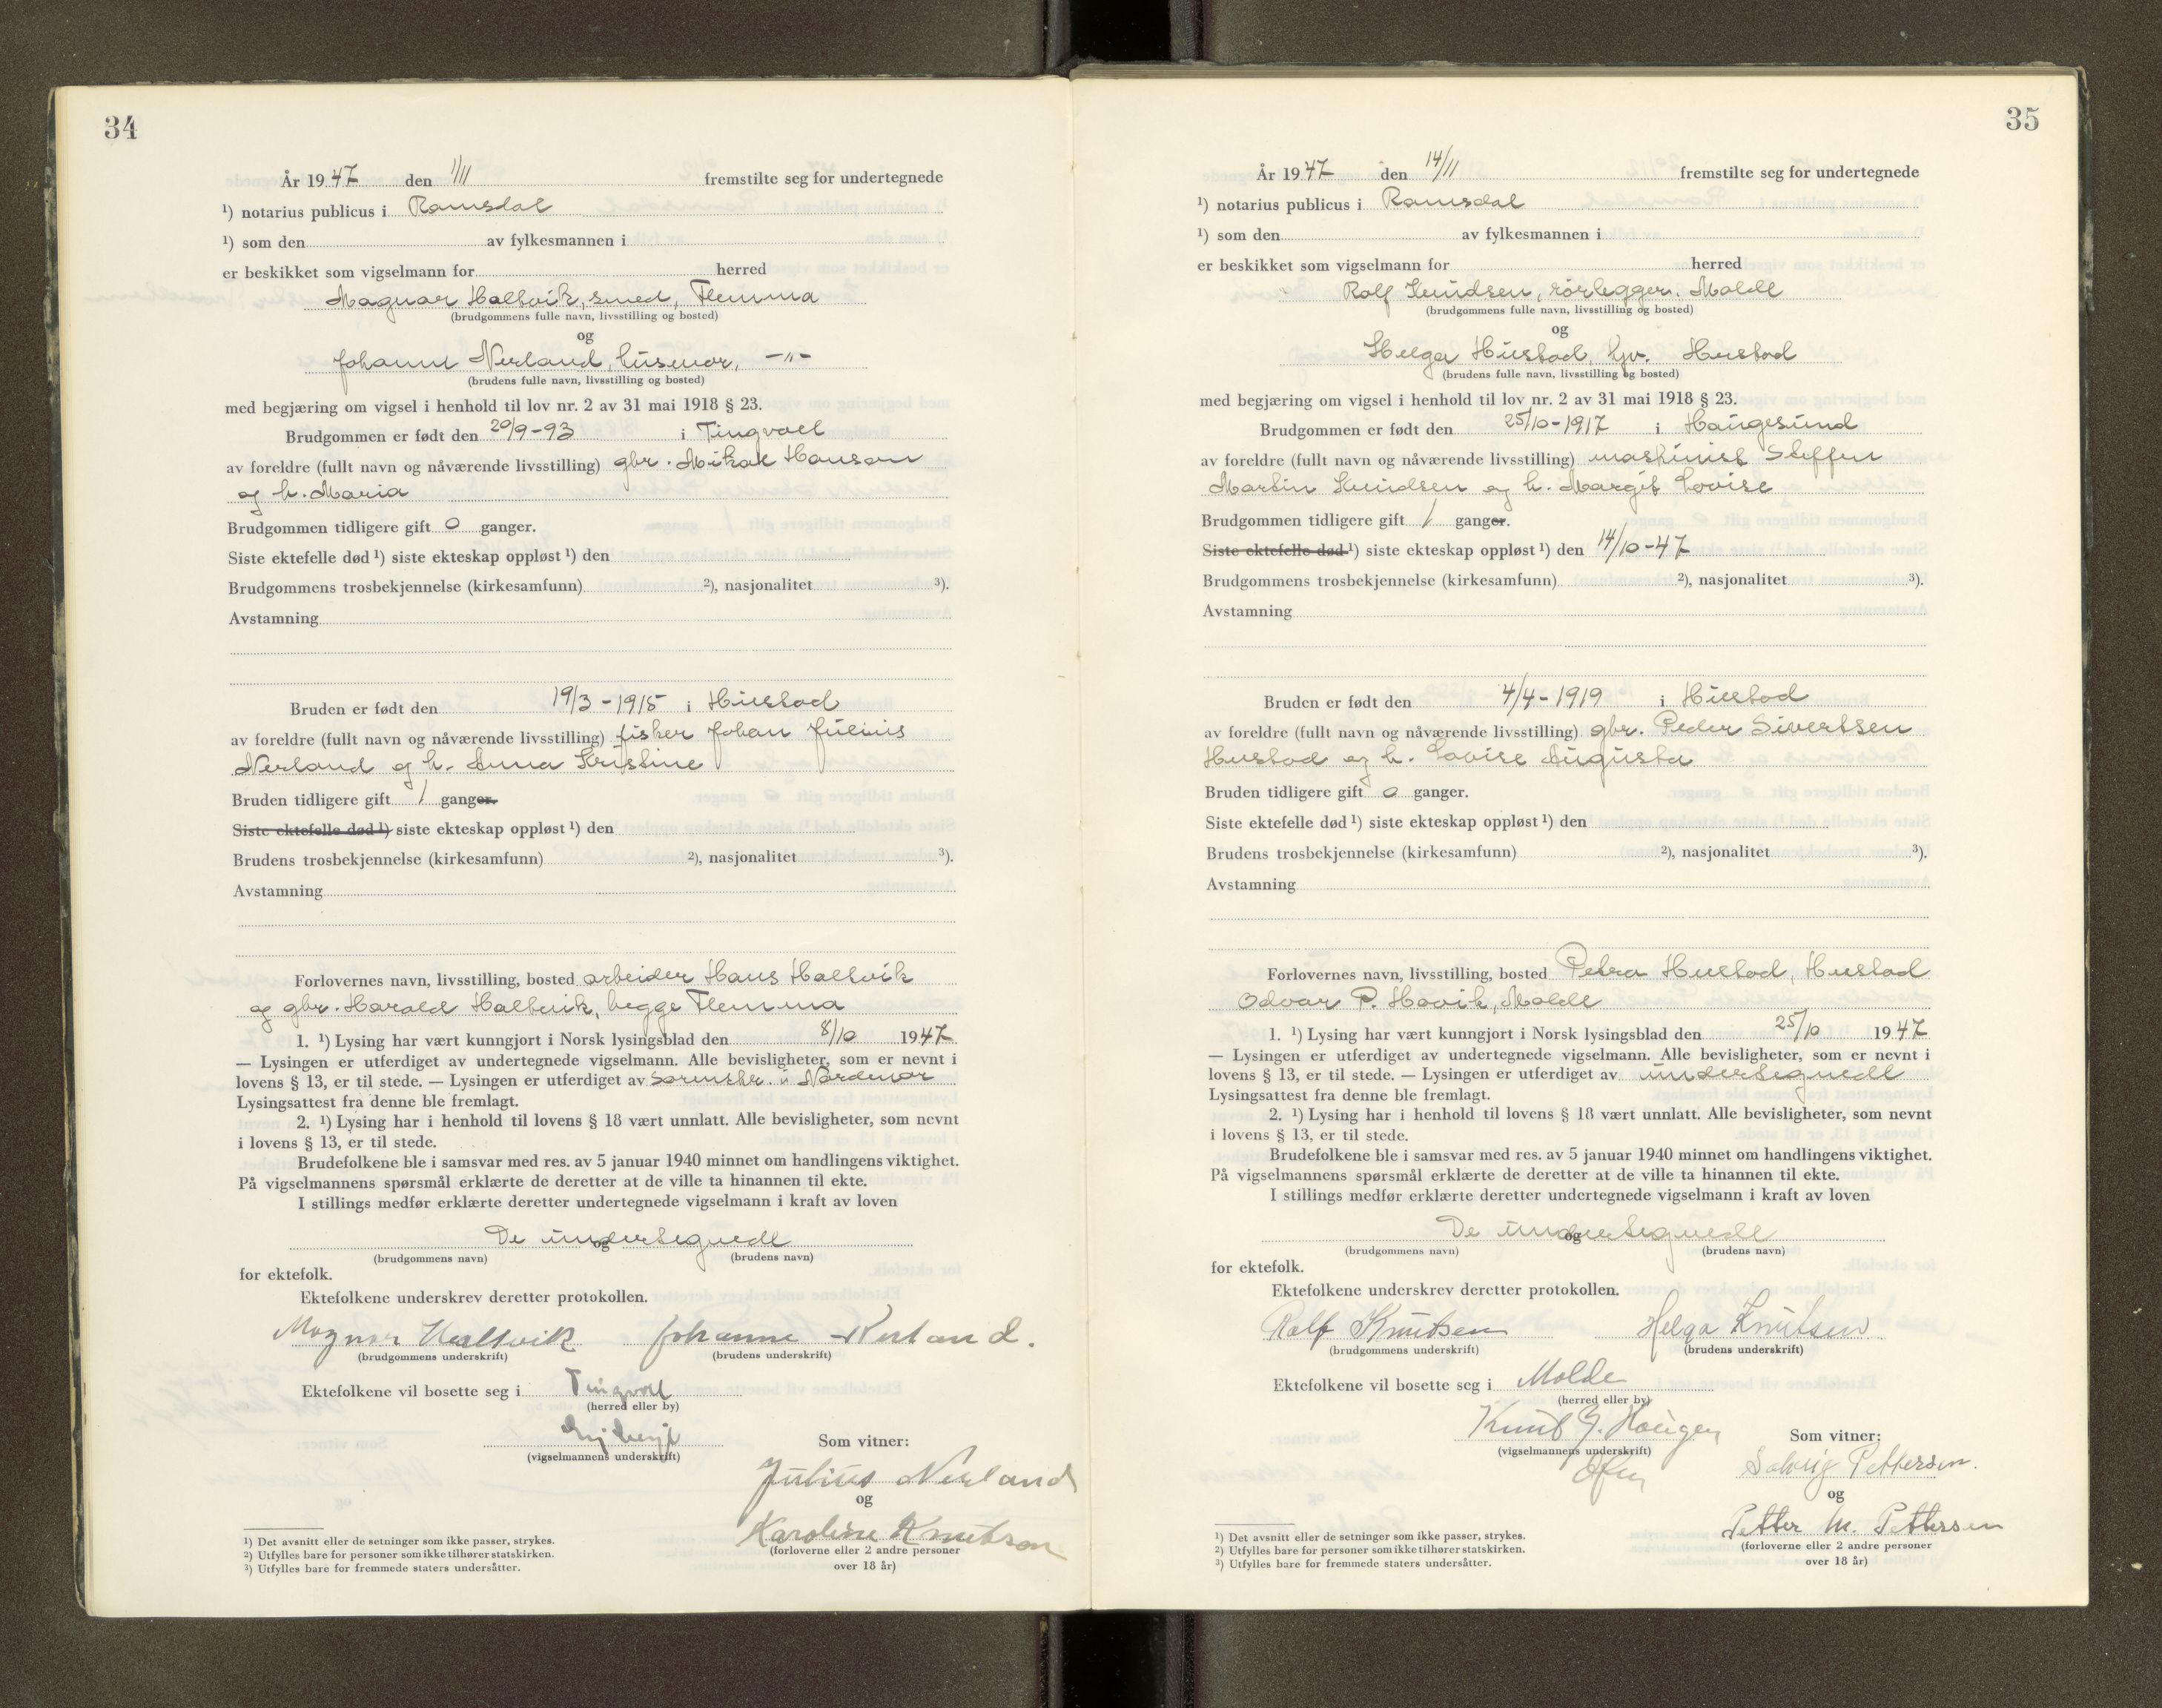 34
År 1947 den 1/11 fremstilte seg for undertegnede
¹) notarius publicus i Romsdal
¹) som den av fylkesmannen i
er beskikket som vigselmann for herred
Magnar Haltvik, smed, Flemma
(brudgommens fulle navn, livsstilling og bosted)
og
Johanne Nerland, husmor, -"-
(brudens fulle navn, livsstilling og bosted)
med begjæring om vigsel i henhold til lov nr. 2 av 31 mai 1918 § 23.
Brudgommen er født den 20/9-93 i Tingvoll
av foreldre (fullt navn og nåværende livsstilling) gbr. Mikal Hanson
og h. Maria
Brudgommen tidligere gift 0 ganger.
Siste ektefelle død ¹) siste ekteskap oppløst ¹) den
Brudgommens trosbekjennelse (kirkesamfunn) ²), nasjonalitet ³).
Avstamning
Bruden er født den 19/3-1915 i Hustad
av foreldre (fullt navn og nåværende livsstilling) fisker Johan Julius
Nerland og h. Anna Kristine
Bruden tidligere gift 1 ganger.
Siste ektefelle død ¹) siste ekteskap oppløst ¹) den
Brudens trosbekjennelse (kirkesamfunn) ²), nasjonalitet ³).
Avstamning
Forlovernes navn, livsstilling, bosted arbeider Hans Haltvik
og gbr. Harald Haltvik, begge Flemma
1. ¹) Lysing har vært kunngjort i Norsk lysingsblad den 8/10 1947
— Lysingen er utferdiget av undertegnede vigselmann. Alle bevisligheter, som er nevnt i
lovens § 13, er til stede. — Lysingen er utferdiget av sorenskr. i Nordmør
Lysingsattest fra denne ble fremlagt.
2. ¹) Lysing har i henhold til lovens § 18 vært unnlatt. Alle bevisligheter, som nevnt
i lovens § 13, er til stede.
Brudefolkene ble i samsvar med res. av 5 januar 1940 minnet om handlingens viktighet.
På vigselmannens spørsmål erklærte de deretter at de ville ta hinannen til ekte.
I stillings medfør erklærte deretter undertegnede vigselmann i kraft av loven
De undertegnede
og
(brudgommens navn) (brudens navn)
for ektefolk.
Ektefolkene underskrev deretter protokollen.
Magnar Haltvik Johanne Nerland.
(brudgommens underskrift) (brudens underskrift)
Ektefolkene vil bosette seg i Tingvoll
(herred eller by)
(vigselmannens underskrift)
Som vitner:
Julius Nerland
og
Karoline Knutson
(forloverne eller 2 andre personer
over 18 år)
¹) Det avsnitt eller de setninger som ikke passer, strykes.
²) Utfylles bare for personer som ikke tilhører statskirken.
³) Utfylles bare for fremmede staters undersåtter.
35
År 1947 den 14/11 fremstilte seg for undertegnede
¹) notarius publicus i Romsdal
¹) som den av fylkesmannen i
er beskikket som vigselmann for herred
Rolf Knudsen, rørlegger, Molde
(brudgommens fulle navn, livsstilling og bosted)
og
Helga Hustad, hjv. Hustad
(brudens fulle navn, livsstilling og bosted)
med begjæring om vigsel i henhold til lov nr. 2 av 31 mai 1918 § 23.
Brudgommen er født den 25/10-1917 i Haugesund
av foreldre (fullt navn og nåværende livsstilling) maskinist Steffen
Martin Knudsen og h. Margit Lovise
Brudgommen tidligere gift 1 ganger.
Siste ektefelle død ¹) siste ekteskap oppløst ¹) den 14/10-47
Brudgommens trosbekjennelse (kirkesamfunn) ²), nasjonalitet ³).
Avstamning
Bruden er født den 4/4-1919 i Hustad
av foreldre (fullt navn og nåværende livsstilling) gbr. Peder Sivertsen
Hustad og h. Lovise Augusta
Bruden tidligere gift 0 ganger.
Siste ektefelle død ¹) siste ekteskap oppløst ¹) den
Brudens trosbekjennelse (kirkesamfunn) ²), nasjonalitet ³).
Avstamning
Forlovernes navn, livsstilling, bosted Petra Hustad, Hustad
Odvar P. Hovik, Molde
1. ¹) Lysing har vært kunngjort i Norsk lysingsblad den 25/10 1947
— Lysingen er utferdiget av undertegnede vigselmann. Alle bevisligheter, som er nevnt i
lovens § 13, er til stede. — Lysingen er utferdiget av undertegnede
Lysingsattest fra denne ble fremlagt.
2. ¹) Lysing har i henhold til lovens § 18 vært unnlatt. Alle bevisligheter, som nevnt
i lovens § 13, er til stede.
Brudefolkene ble i samsvar med res. av 5 januar 1940 minnet om handlingens viktighet.
På vigselmannens spørsmål erklærte de deretter at de ville ta hinannen til ekte.
I stillings medfør erklærte deretter undertegnede vigselmann i kraft av loven
De undertegnede
og
(brudgommens navn) (brudens navn)
for ektefolk.
Ektefolkene underskrev deretter protokollen.
Rolf Knutsen Helga Knutsen
(brudgommens underskrift) (brudens underskrift)
Ektefolkene vil bosette seg i Molde
(herred eller by)
Knut J. Haugen
(vigselmannens underskrift)
Som vitner:
Solveig Pettersen.
og
Petter M. Pettersen
(forloverne eller 2 andre personer
over 18 år)
¹) Det avsnitt eller de setninger som ikke passer, strykes.
²) Utfylles bare for personer som ikke tilhører statskirken.
³) Utfylles bare for fremmede staters undersåtter.